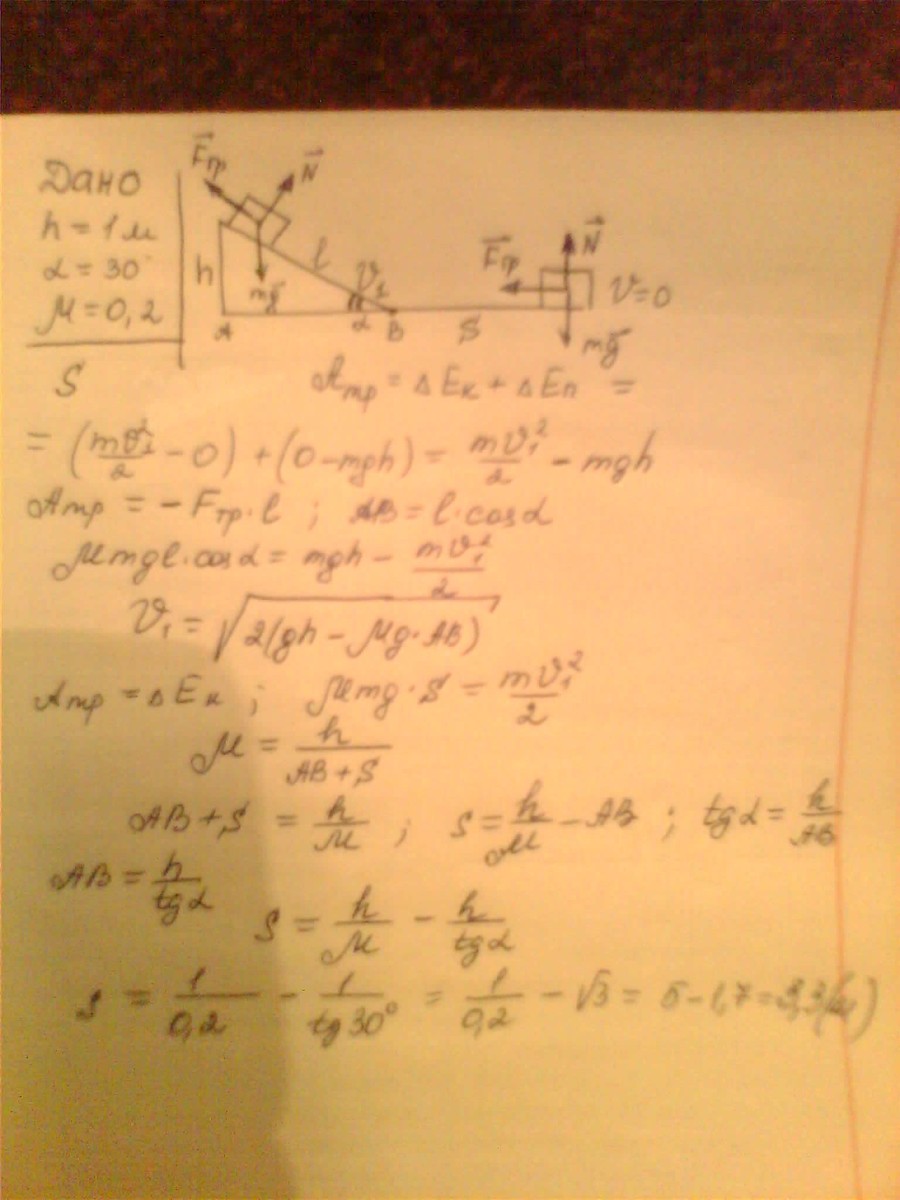 Дано
h = 1 м
α = 30°
μ = 0,2
S
F⃗тр
N⃗
h
l
v₁
mg⃗
α
A
B
S
F⃗тр
N⃗
v = 0
mg⃗
Aтр = ΔEк + ΔEп =
= (mv₁²/2 − 0) + (0 − mgh) = mv₁²/2 − mgh
Aтр = − Fтр · l ; AB = l · cosα
μmgl · cosα = mgh − mv₁²/2
v₁ = √(2(gh − μg · AB))
Aтр = ΔEк ; μmg · S = mv₁²/2
μ = h/(AB + S)
AB + S = h/μ ; S = h/μ − AB ; tgα = h/AB
AB = h/tgα
S = h/μ − h/tgα
S = 1/0,2 − 1/tg30° = 1/0,2 − √3 = 5 − 1,7 = 3,3 (м)